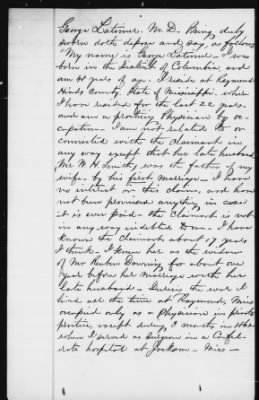 George Latimer, M.D. Being duly
sworn doth depose and say, as follows
"My name is George Latimer - I was
born in the District of Columbia, and
am 48 years of age. I reside at Raymond
Hinds County, State of Mississippi. where
I have resided for the last 22 years.
and am a practicing Physician by oc-
cupation - I am not related to or
connected with the claimant in
any way except that her late husband
Mr. W. H. was the father of my
wife, by his first marriage - I have
no interest in this claim, and have
not been promised anything in case
it is ever paid - the claimant is not
in any way indebted to me. I have
known the claimant about 17 years
I think - I knew her as the widow
of Mr Reuben for about one
year before her marriage with her
late husband - During the war I
lived all the time at Raymond, Miss
occupied only as a Physician in private
practice, except during 7 months in 1862
when I served as Surgeon in a Confed-
erate hospital at Jackson - Miss -